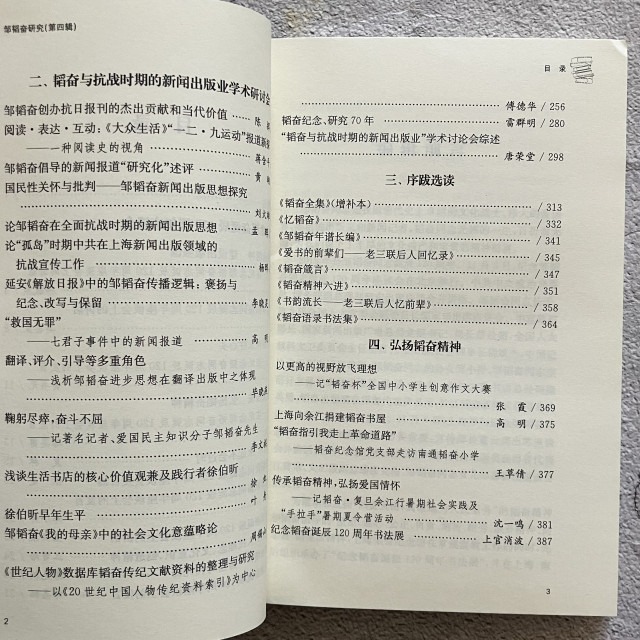 邹韬奋研究(第四辑)
二、韬奋与抗战时期的新闻出版业学术研讨会
邹韬奋创办抗日报刊的杰出贡献和当代价值
阅读·表达·互动:《大众生活》“一二·九运动”报道新探
——一种阅读史的视角
邹韬奋倡导的新闻报道“研究化”述评
国民性关怀与批判——邹韬奋新闻出版思想探究
论邹韬奋在全面抗战时期的新闻出版思想
论“孤岛”时期中共在上海新闻出版领域的
抗战宣传工作
延安《解放日报》中的邹韬奋传播逻辑:褒扬与
纪念、改写与保留
“救国无罪”
——七君子事件中的新闻报道 高明
翻译、评介、引导等多重角色
——浅析邹韬奋进步思想在翻译出版中之体现
鞠躬尽瘁,奋斗不屈
——记著名记者、爱国民主知识分子邹韬奋先生
浅谈生活书店的核心价值观兼及践行者徐伯昕
徐伯昕早年生平
邹韬奋《我的母亲》中的社会文化意蕴略论
《世纪人物》数据库韬奋传纪文献资料的整理与研究
——以《20世纪中国人物传纪资料索引》为中心
2
目 录
傅德华 / 256
韬奋纪念、研究70年 雷群明 / 280
“韬奋与抗战时期的新闻出版业”学术讨论会综述
唐荣堂 / 298
三、序跋选读
《韬奋全集》(增补本) / 313
《忆韬奋》 / 332
《邹韬奋年谱长编》 / 341
《爱书的前辈们——老三联后人回忆录》 / 345
《韬奋箴言》 / 347
《韬奋精神六进》 / 351
《书韵流长——老三联后人忆前辈》 / 358
《韬奋语录书法集》 / 364
四、弘扬韬奋精神
以更高的视野放飞理想
——记“韬奋杯”全国中小学生创意作文大赛
张 霞 / 369
上海向余江捐建韬奋书屋 高 明 / 375
“韬奋指引我走上革命道路”
——韬奋纪念馆党支部走访南通韬奋小学
王草倩 / 377
传承韬奋精神,弘扬爱国情怀
——记韬奋·复旦余江行暑期社会实践及
“手拉手”暑期夏令营活动 沈一鸣 / 381
纪念韬奋诞辰120周年书法展 上官消波 / 387
3